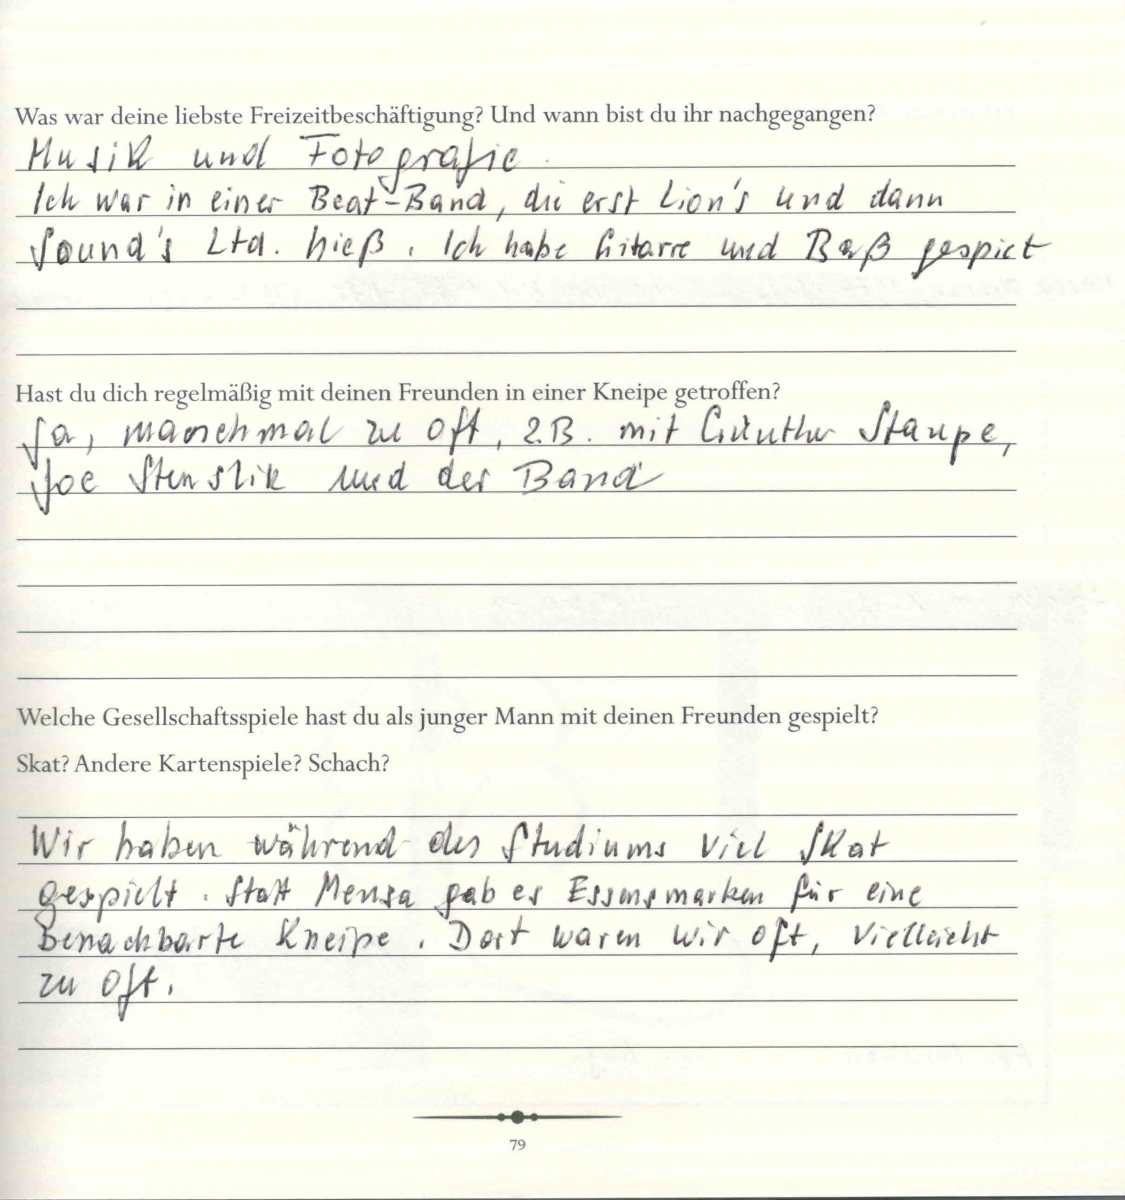 Was war deine liebste Freizeitbeschäftigung? Und wann bist du ihr nachgegangen?
Musik und Fotografie.
Ich war in einer Beat-Band, die erst Lion's und dann
Sound's Ltd. hieß. Ich habe Gitarre und Baß gespielt
Hast du dich regelmäßig mit deinen Freunden in einer Kneipe getroffen?
Ja, manchmal zu oft, z.B. mit Günther Staupe,
Joe und der Band
Welche Gesellschaftsspiele hast du als junger Mann mit deinen Freunden gespielt?
Skat? Andere Kartenspiele? Schach?
Wir haben während des Studiums viel Skat
gespielt. Statt Mensa gab es Essensmarken für eine
benachbarte Kneipe. Dort waren wir oft, vielleicht
zu oft.
79